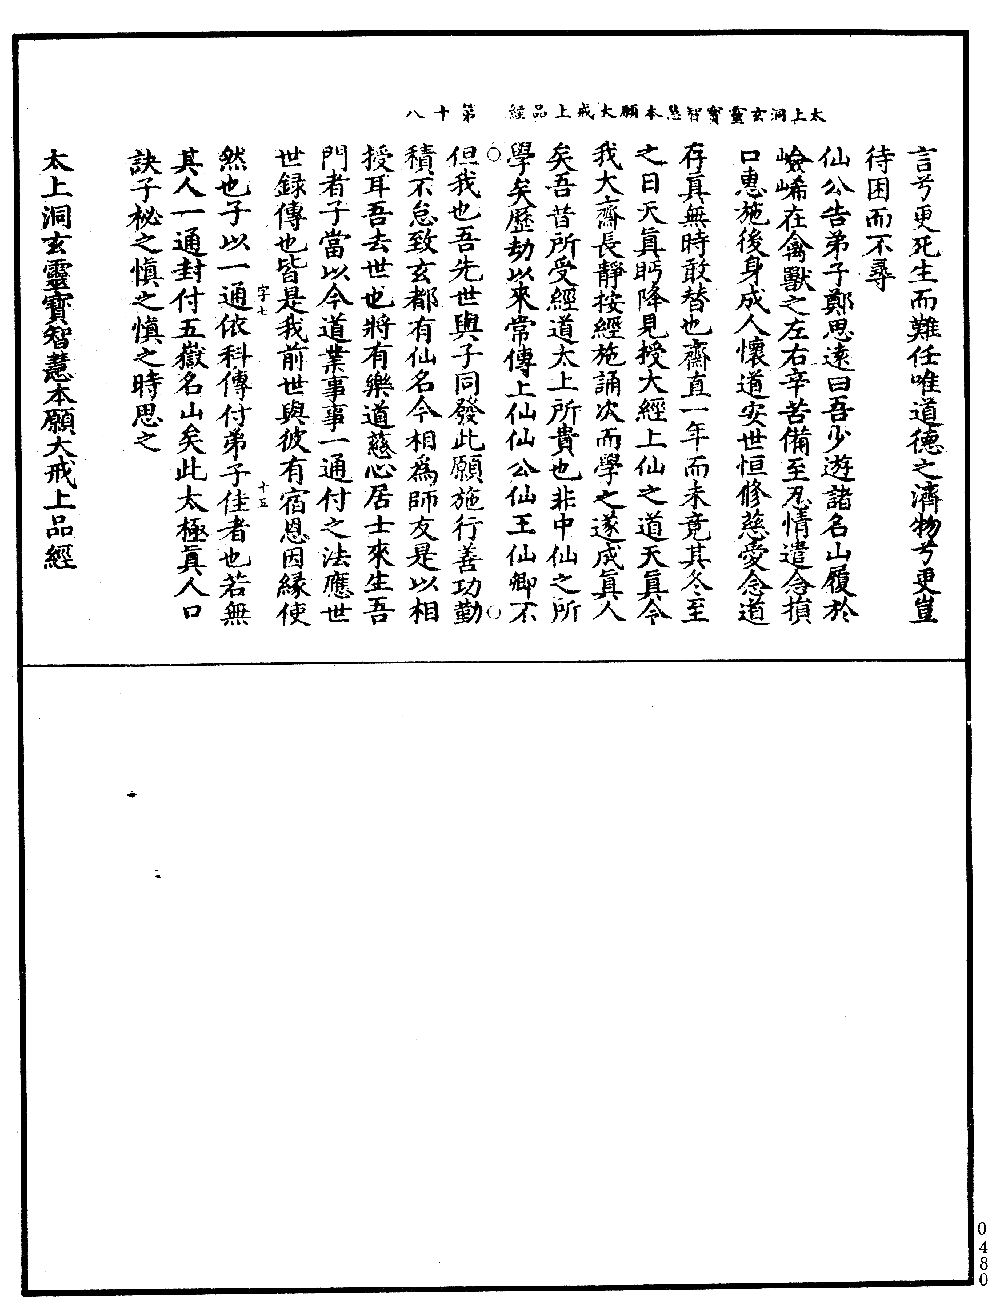 太上洞玄靈寶智慧本願大戒上品經　第十八
言兮更死生而難任唯道德之濟物兮更豈
待困而不尋
仙公告弟子鄭思遠曰吾少遊諸名山履於
嶮巇在禽獸之左右辛苦備至忍情遣念損
口惠施後身成人懷道安世恒修慈愛念道
存真無時敢替也齋直一年而未竟其冬至
之日天真眄降見授大經上仙之道天真令
我大齋長靜按經施誦次而學之遂成真人
矣吾昔所受經道太上所貴也非中仙之所
學矣歷劫以來常傳上仙仙公仙王仙卿不
但我也吾先世與子同發此願施行善功勤
積不怠致玄都有仙名今相為師友是以相
授耳吾去世也將有樂道慈心居士來生吾
門者子當以今道業事事一通付之法應世
世錄傳也皆是我前世與彼有宿恩因緣使
字七　十五
然也子以一通依科傳付弟子佳者也若無
其人一通封付五嶽名山矣此太極真人口
訣子祕之慎之慎之時思之
太上洞玄靈寶智慧本願大戒上品經
0480